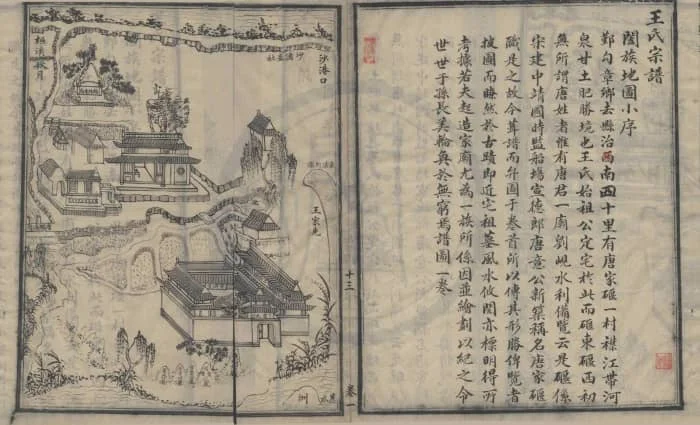 王氏宗譜
闔族地圖小序
鄞句章鄉去縣治西南四十里有唐家碾一村襟江帶河
泉甘土肥勝境也王氏始祖公定宅於此而碾東碾西初
無所謂唐姓者惟有唐君一廟劉峴水利備覽云是碾係
宋建中靖國時監船場宣德郎唐意公新築稱名唐家碾
職是之故今葺譜而弁圖于卷首所以傳其形勝俾覽者
披圖而瞭然於古蹟即近宅祖墓風水攸關亦標明得所
考據若夫起造家廟尤為一族所係因並繪劃以紀之令
世世子孫長美輪奐於無窮焉譜圖一卷
沙港口
王家
十三
卷一